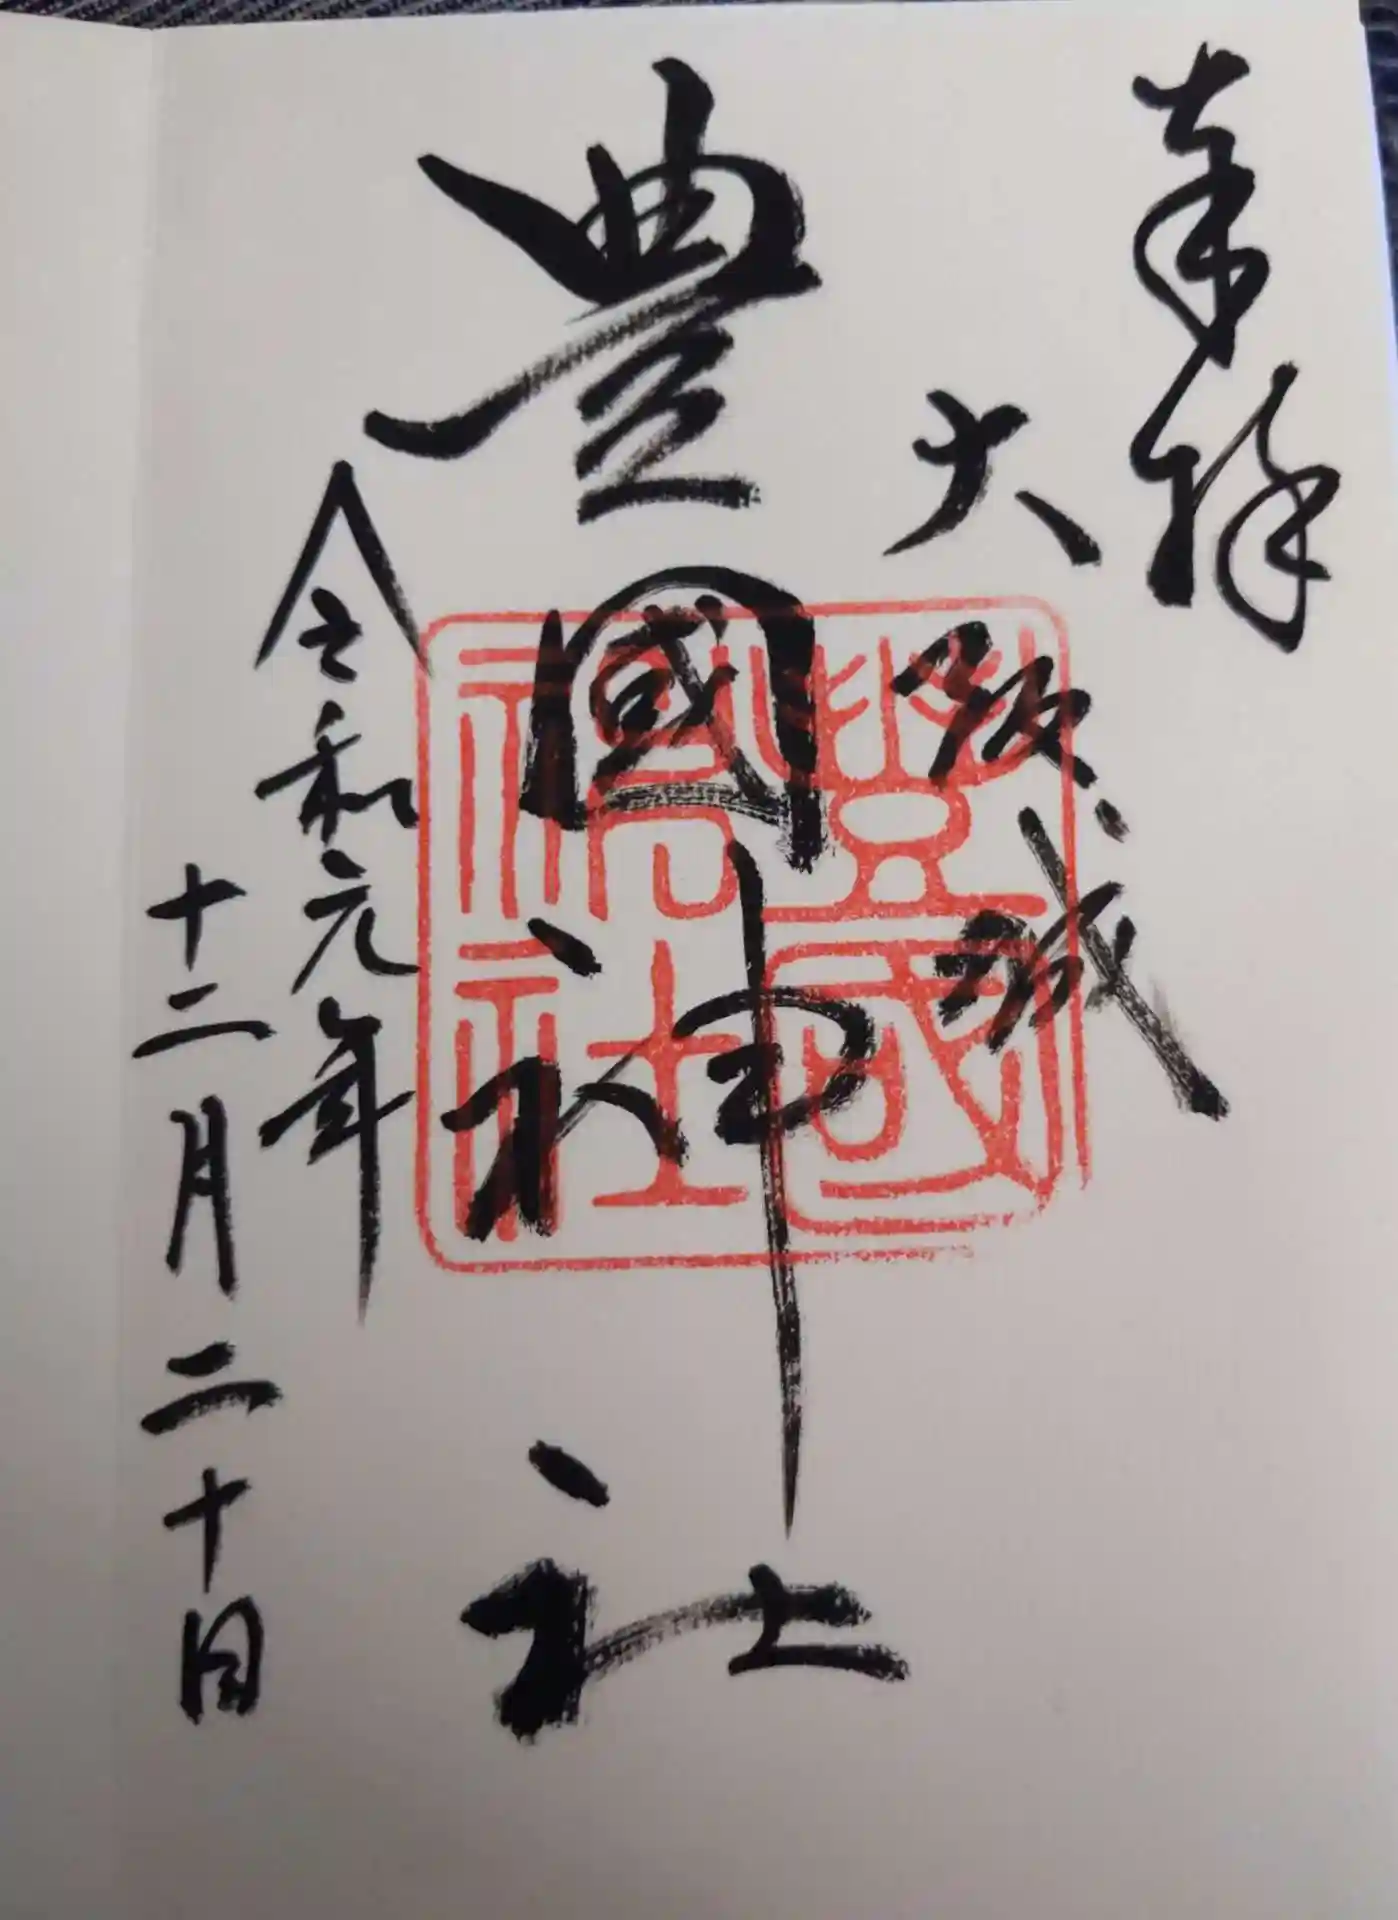 奉拝
大阪城
豊國神社
豊國神社
令和元年
十二月二十日